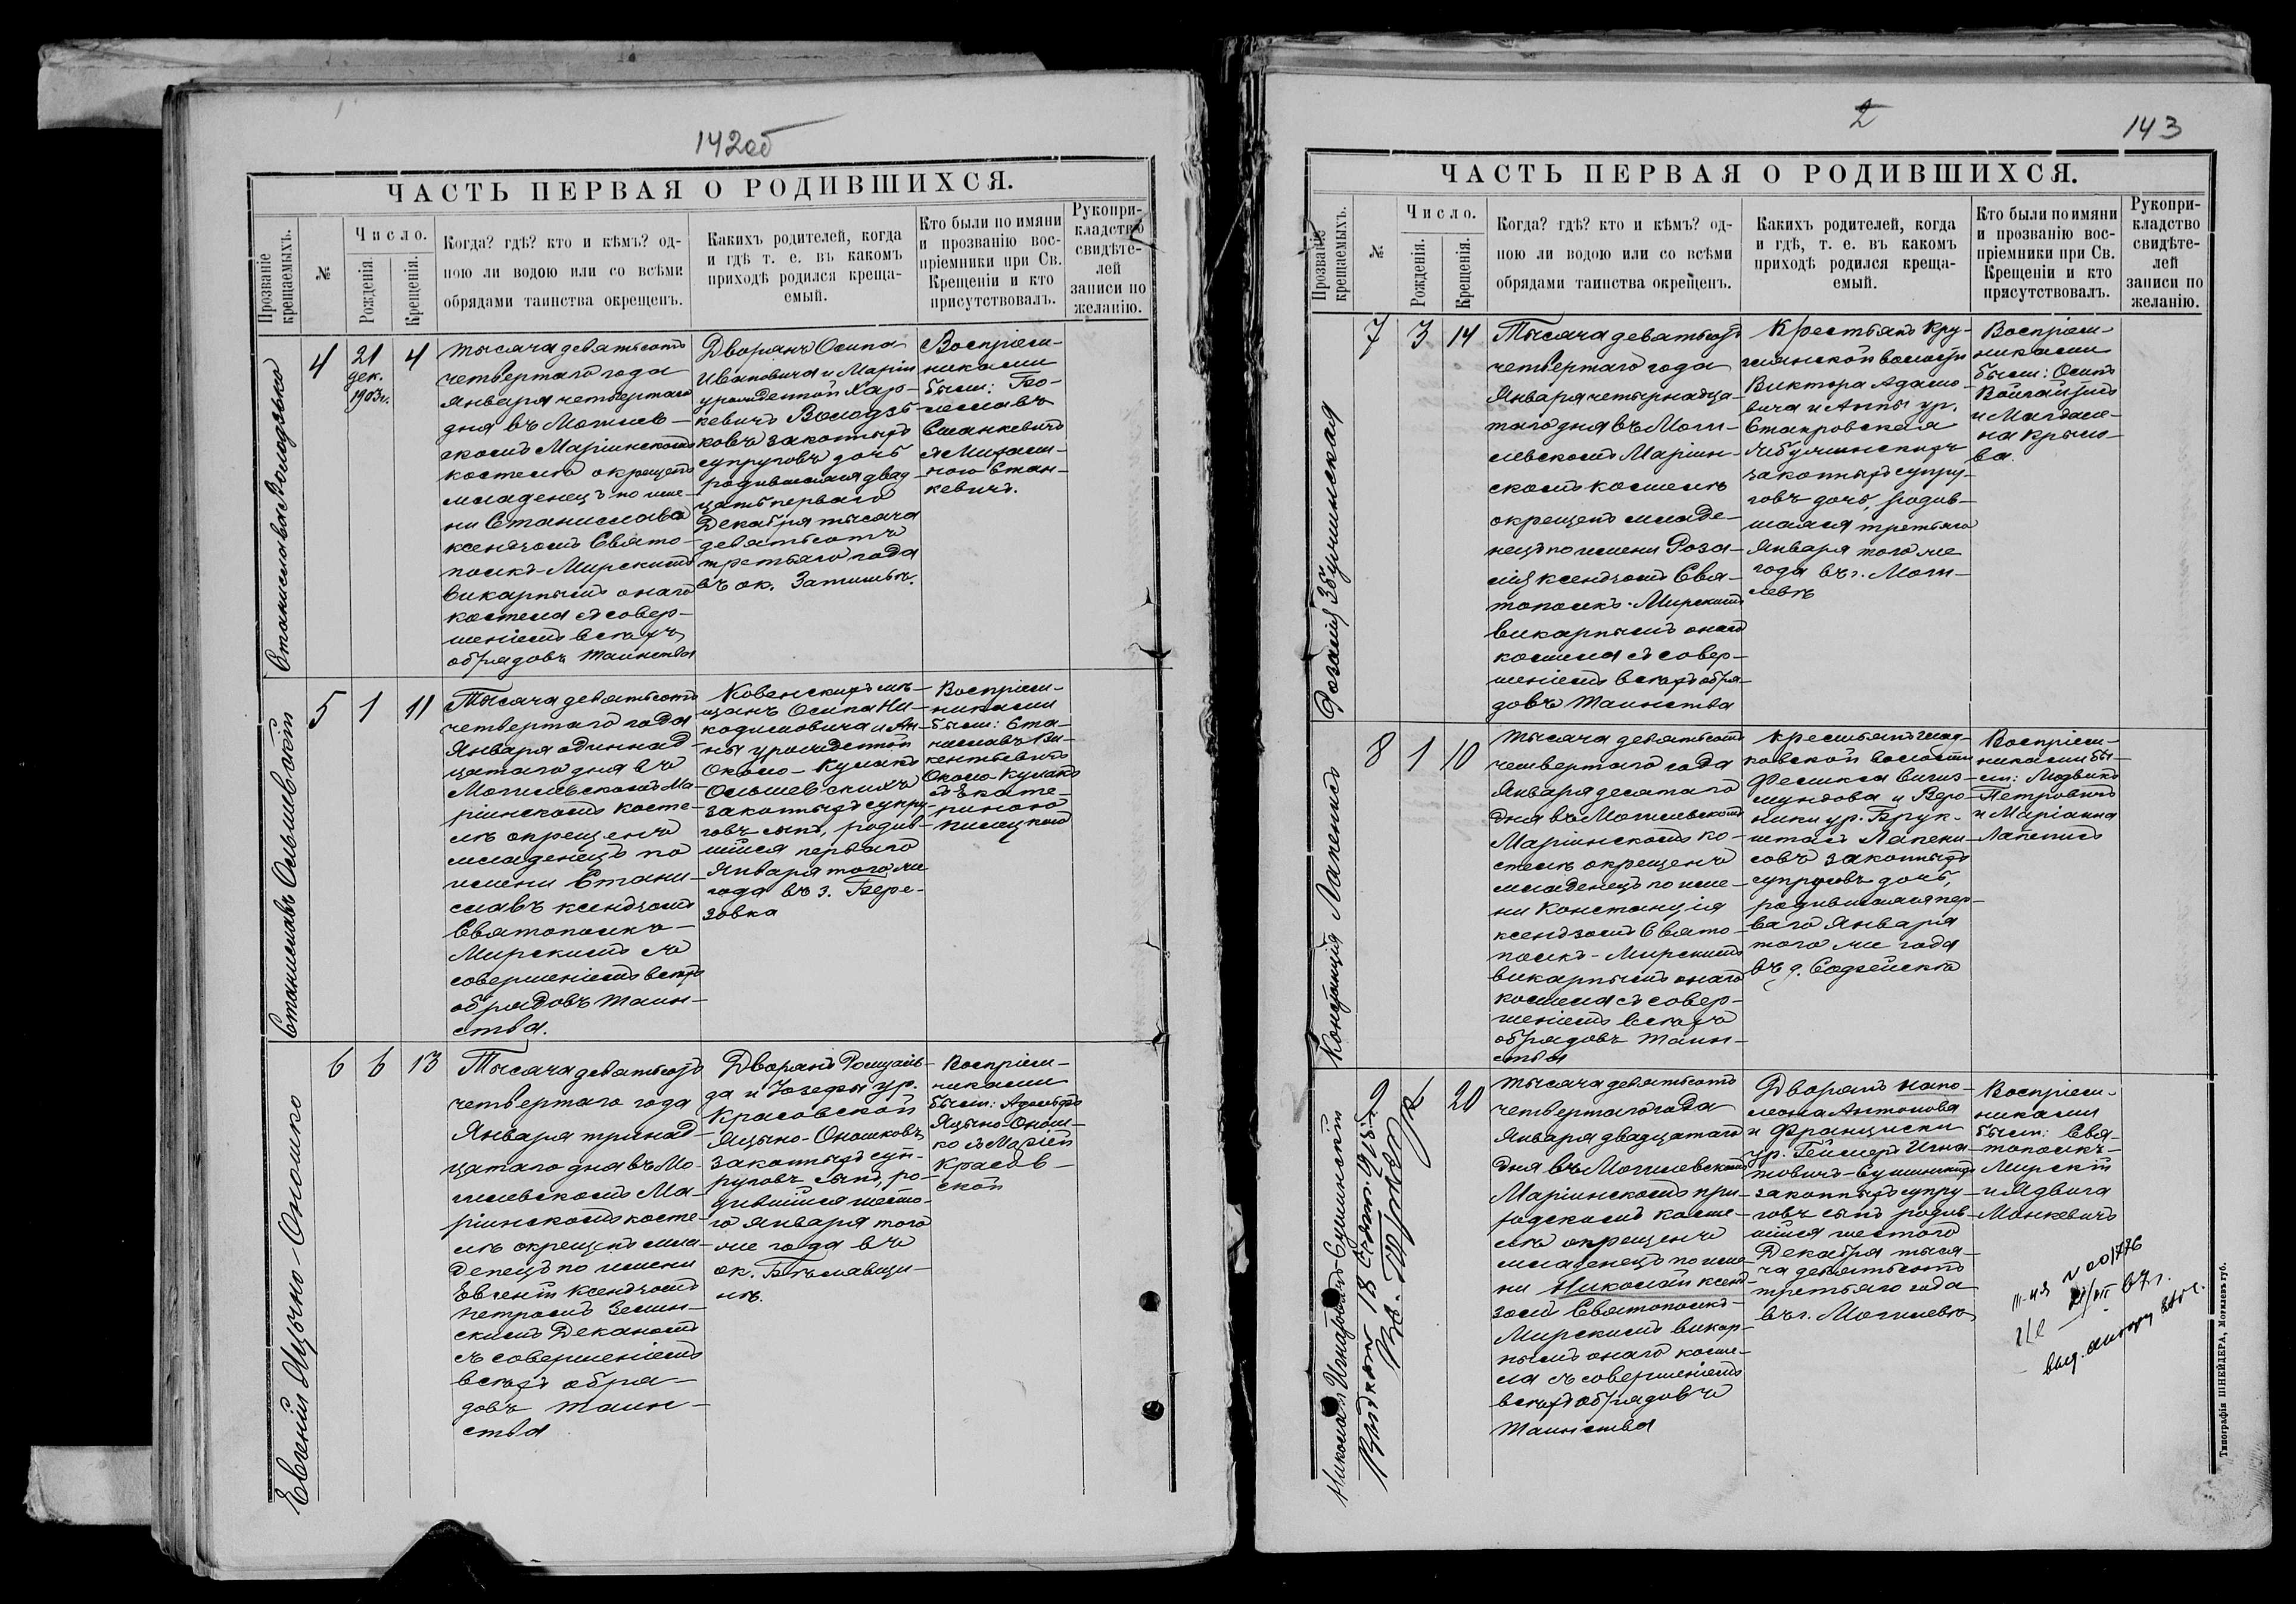 142об
ЧАСТЬ ПЕРВАЯ О РОДИВШИХСЯ.
Прозваніе крещаемыхъ.
№
Число.
Рожденія.
Крещенія.
Когда? гдѣ? кто и кѣмъ? од-
ною ли водою или со всѣми
обрядами таинства окрещенъ.
Какихъ родителей, когда
и гдѣ т. е. въ какомъ
приходѣ родился креща-
емый.
Кто были по имяни
и прозванію вос-
пріемники при Св.
Крещеніи и кто
присутствовалъ.
Рукопри-
кладство
свидѣте-
лей
записи по
желанію.
Станислава Володзько
4
21
дек.
1903г.
4
Тысяча девятьсотъ
четвертаго года
Января четвертаго
дня въ Могилев-
скомъ Маріинскомъ
костелѣ окрещенъ
младенецъ по име-
ни Станислава
ксендзомъ Свято-
полкъ-Мирскимъ
викарнымъ онаго
костела съ совер-
шеніемъ всѣхъ
обрядовъ таинства
Дворянъ Осипа
Ивановича и Маріи
урожденной Хар-
кевичъ Володзь-
ковъ законныхъ
супруговъ дочь
родившаяся двад-
цать перваго
Декабря тысяча
девятьсотъ
третьяго года
въ ок. Затишье.
Воспріем-
никами
были: Бо-
леславъ
Станкевичъ
съ
Стан-
кевичъ.
Станиславъ Ольшевскій
5
1
11
Тысяча девятьсотъ
четвертаго года
Января одиннад-
цатаго дня въ
Могилевскомъ Ма-
ріинскомъ косте-
лѣ окрещенъ
младенецъ по
имени Стани-
славъ ксендзомъ
Святополкъ-
Мирскимъ съ
совершеніемъ всѣхъ
обрядовъ таин-
ства.
Ковенскихъ мѣ-
щанъ Осипа Ни-
кодимовича и Ан-
ны урожденной
Около-Кулакъ
Ольшевскихъ
законныхъ супру-
говъ сынъ, родив-
шійся перваго
Января того же
года въ з. Бере-
зовка
Воспріем-
никами
были: Ста-
ниславъ Ви-
кентьевичъ
Около-Кулакъ
съ Екате-
риною
Евгеній Яцыно-Оношко
6
6
13
Тысяча девятьсотъ
четвертаго года
Января тринад-
цатаго дня въ Мо-
гилевскомъ Ма-
ріинскомъ косте-
лѣ окрещенъ мла-
денецъ по имени
Евгеній Ксендзомъ
Петромъ Зелин-
скимъ Деканомъ
съ совершеніемъ
всѣхъ обря-
довъ таин-
ства
Дворянъ Ромуаль-
да и Юзефы ур.
Красовской
Яцыно-Оношковъ
законныхъ суп-
руговъ сынъ, ро-
дившійся шесто-
го Января того
же года въ
ок.
Воспріем-
никами
были: Адольфъ
Яцыно-Онош-
ко съ Маріей
Красов-
ской
2
143
ЧАСТЬ ПЕРВАЯ О РОДИВШИХСЯ.
Прозваніе крещаемыхъ.
№
Число.
Рожденія.
Крещенія.
Когда? гдѣ? кто и кѣмъ? од-
ною ли водою или со всѣми
обрядами таинства окрещенъ.
Какихъ родителей, когда
и гдѣ, т. е. въ какомъ
приходѣ родился креща-
емый.
Кто были по имяни
и прозванію вос-
пріемники при Св.
Крещеніи и кто
присутствовалъ.
Рукопри-
кладство
свидѣте-
лей
записи по
желанію.
Розалія
7
3
14
Тысяча девятьсотъ
четвертаго года
Января четырнадца-
таго дня въ Моги-
левскомъ Маріин-
скомъ костелѣ
окрещенъ младе-
нецъ по имени Роза-
лія ксендзомъ Свя-
тополкъ-Мирскимъ
викарнымъ онаго
костела съ совер-
шеніемъ всѣхъ обря-
довъ таинства
Крестьянъ Кру-
глянской волости
Виктора Адамо-
вича и Анны ур.
законныхъ супру-
говъ дочь, родив-
шаяся третьяго
Января того же
года въ г. Моги-
левѣ
Воспріем-
никами
были: Осипъ
и Магдале-
на Крыло-
ва.
Констанція Лапенисъ
8
1
10
Тысяча девятьсотъ
четвертаго года
Января десятаго
дня въ Могилевскомъ
Маріинскомъ ко-
стелѣ окрещенъ
младенецъ по име-
ни Констанція
ксендзомъ Свято-
полкъ-Мирскимъ
викарнымъ онаго
костела съ совер-
шеніемъ всѣхъ
обрядовъ таин-
ства
волости
Феликса Сигиз-
мундова и Веро-
ники ур. Брук-
штасъ Лапени-
совъ законныхъ
супруговъ дочь,
родившаяся пер-
ваго Января
того же года
въ д.
Воспріем-
никами бы-
ли: Людвикъ
Петровичъ
и Маріанна
Лапенисъ
Николай Игнатовичъ-Сушинскій
9
20
Тысяча девятьсотъ
четвертаго года
Января двадцатаго
дня въ Могилевскомъ
Маріинскомъ при-
ходскомъ косте-
лѣ окрещенъ
младенецъ по име-
ни Николай ксенд-
зомъ Святополкъ-
Мирскимъ викар-
нымъ онаго косте-
ла съ совершеніемъ
всѣхъ обрядовъ
таинства
Дворянъ Напо-
леона Антонова
и Франциски
ур. Геймеръ Игна-
товичъ-Сушинскихъ
законныхъ супру-
говъ сынъ родив-
шійся шестого
Декабря тыся-
ча девятьсотъ
третьяго года
въ г. Могилевѣ
Воспріем-
никами
были: Свя-
тополкъ-
Мирскій
и Ядвига
Манкевичъ
Типографія ШНЕЙДЕРА, Могилевъ губ.